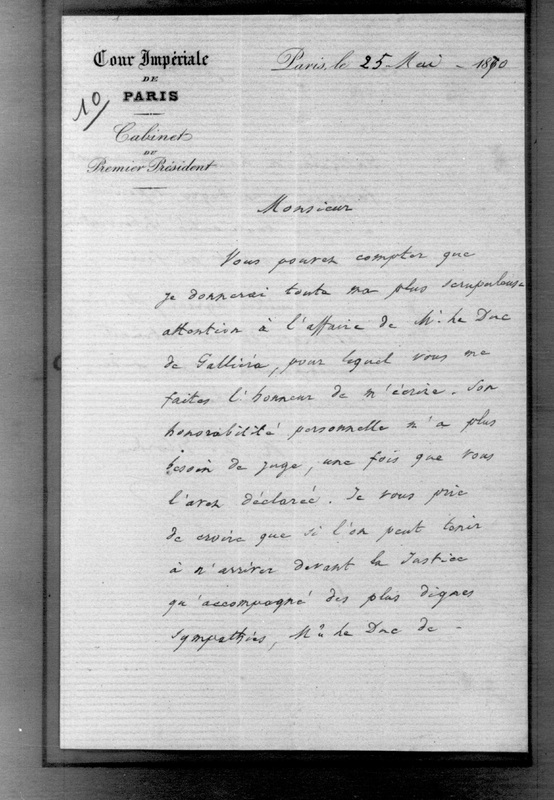 Cour Impériale
DE
PARIS
10/
Cabinet
DU
Premier Président
Paris, le 25 Mai - 1870
Monsieur
Vous pouvez compter que
je donnerai toute ma plus scrupuleuse
attention à l'affaire de Mr. le Duc
de Galliéra, pour lequel vous me
faites l'honneur de m'écrire. Son
honorabilité personnelle n'a plus
besoin de juge, une fois que vous
l'avez déclarée. Je vous prie
de croire que si l'on peut tenir
à n'arriver devant la Justice
qu'accompagné des plus dignes
sympathies, Mr. le Duc de -